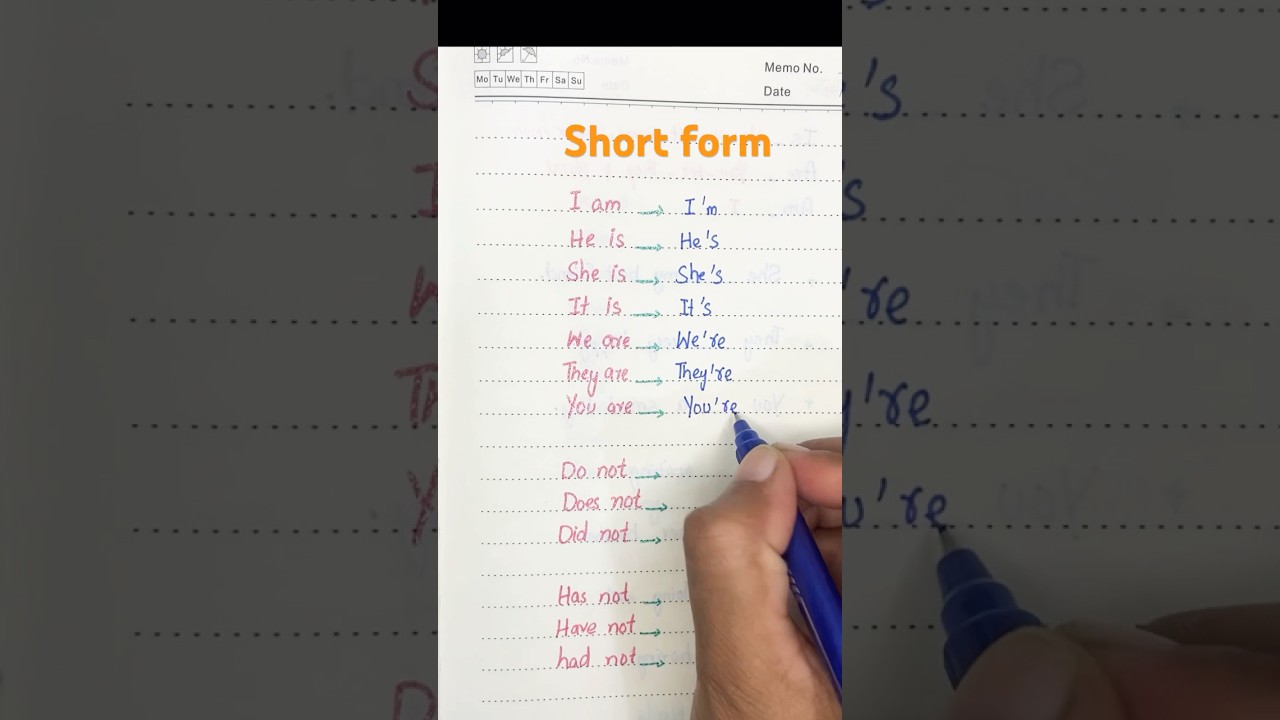 Mo Tu We Th Fr Sa Su
Memo No.
Date
Short form
I am → I'm
He is → He's
She is → She's
It is → It's
We are → We're
They are → They're
You are → You're
Do not →
Does not →
Did not →
Has not →
Have not →
had not →